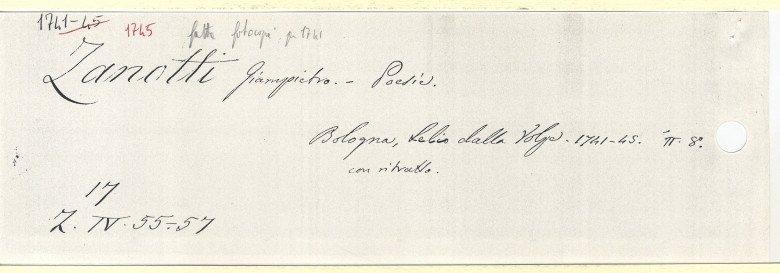 1741-45 1745 fatta fotocopia per 1741
Zanotti Giampietro. - Poesie.
Bologna, Lelio dalla Volpe. 1741-45. 8°.
con ritratto.
17
Z. IV. 55-57